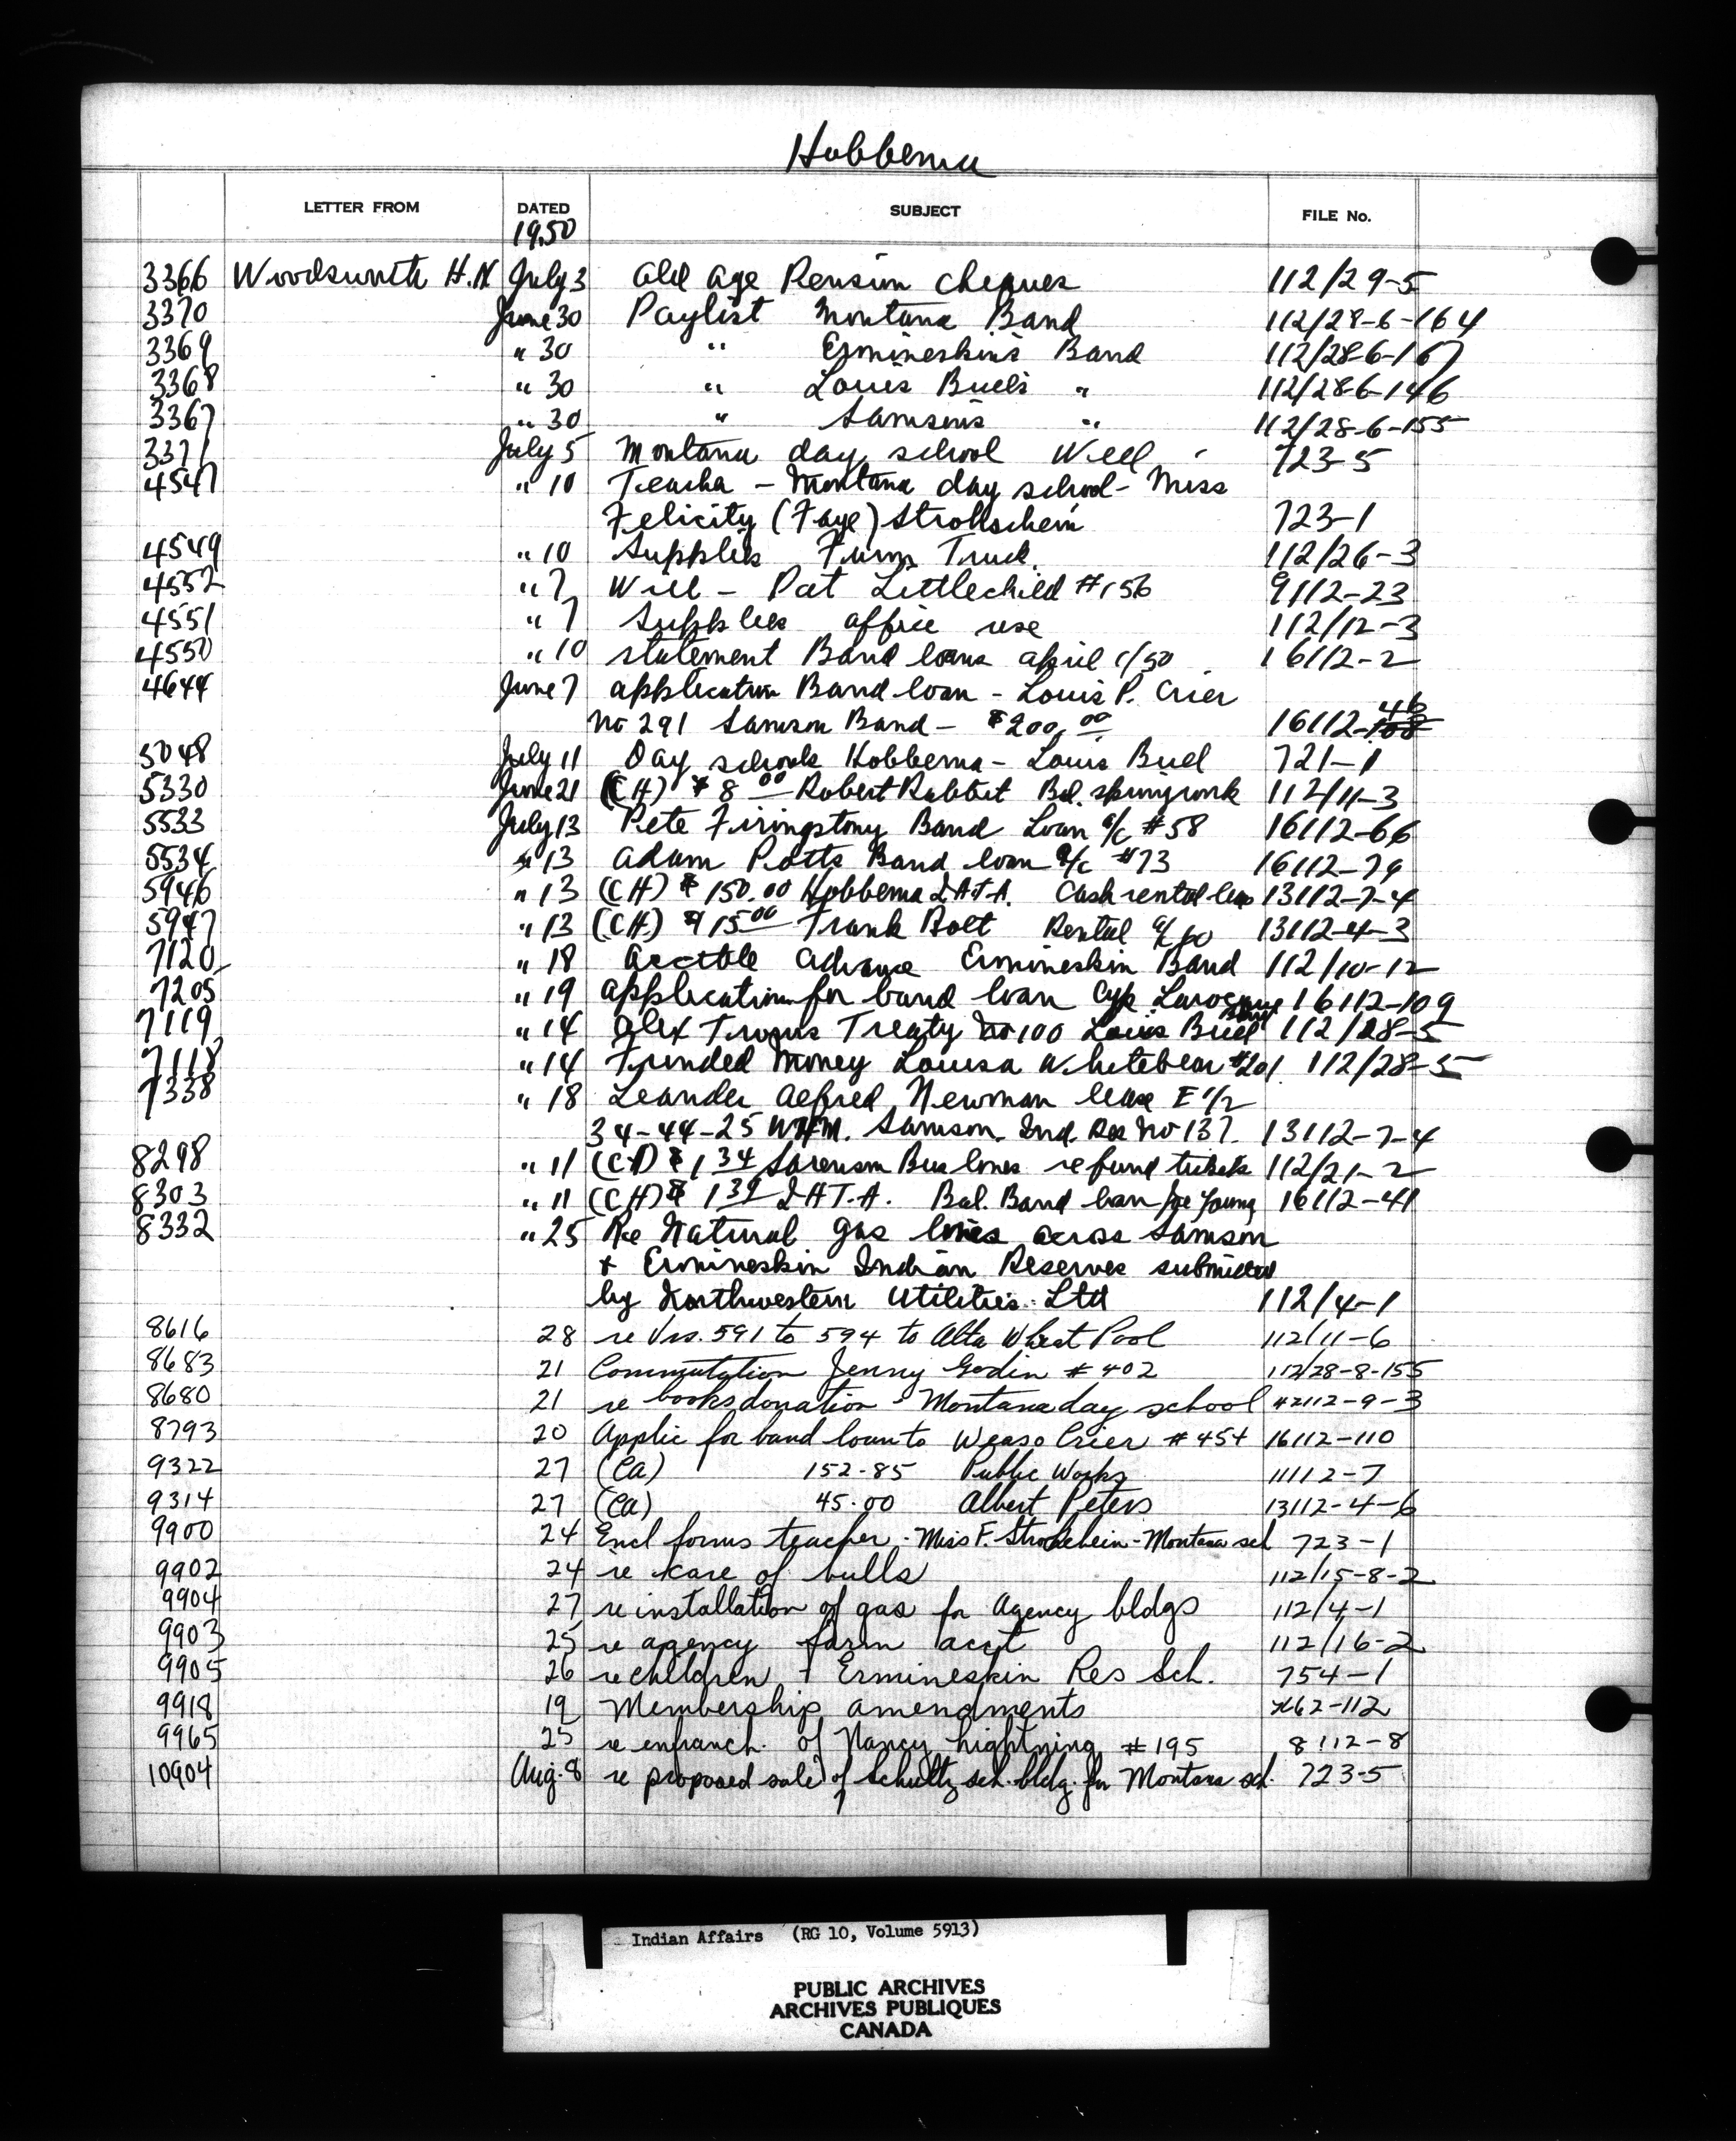 Hobbema
LETTER FROM DATED SUBJECT FILE No.
1950
3366 Woodsworth H.N July 3 Old Age Pension Cheques 112/29-5
3370 June 30 Paylist Montana Band 112/28-6-164
3369 " 30 " Ermineskin's Band 112/28-6-167
3368 " 30 " Louis Bull's " 112/28-6-146
3367 " 30 " Samson's " 112/28-6-155
3371 July 5 Montana day school Well 723-5
4547 " 10 Teacher - Montana day school - Miss
Felicity (Faye) Strohschein 723-1
4549 " 10 Supplies Farm Truck. 112/26-3
4552 " 7 Will - Pat Littlechild #156 9112-23
4551 " 7 Supplies office use 112/12-3
4550 " 10 statement Band loans april 1/50 16112-2
4644 June 7 application Band loan - Louis P. Crier
No 291 Samson Band - $200.00 16112-108 46
5048 July 11 Day schools Hobbema - Louis Bull 721-1
5330 June 21 (CH) $8.00 Robert Rabbit Bal. spring work 112/11-3
5533 July 13 Pete Firingstony Band Loan a/c #58 16112-66
5534 " 13 Adam Potts Band loan a/c #73 16112-79
5946 " 13 (CH) $150.00 Hobbema I.A.T.A. Cash rental leas 13112-7-4
5947 " 13 (CH.) $15.00 Frank Bolt Rental a/c 60 13112-4-3
7120 " 18 Acctble Advance Ermineskin Band 112/10-12
7205 " 19 application for band loan Cyp Larocque 16112-109
7119 " 14 Alex Twins Treaty No 100 Louis Bull Band 112/28-5
7118 " 14 Funded Money Louisa Whitebear #201. 112/28-5
7338 " 18 Leander Alfred Newman lease E 1/2
34-44-25 W4M. Samson Ind. Res No 137. 13112-7-4
8298 " 11 (CH) $1.34 Sorenson Bus lines refund tickets 112/21-2
8303 " 11 (CH) $1.39 I A T.A. Bal. Band loan Joe Young 16112-41
8332 " 25 Re Natural gas lines across Samson
& Ermineskin Indian Reserves submitted
by Northwestern Utilities Ltd 112/4-1
8616 28 re Vrs. 591 to 594 to Alta Wheat Pool 112/11-6
8683 21 Commutation Jenny Godin # 402 112/28-8-155
8680 21 re books donation - Montana day school #2112-9-3
8793 20 Applic for band loan to Weaso Crier # 454 16112-110
9322 27 (Ca) 152-85 Public Works 11112-7
9314 27 (Ca) 45.00 Albert Peters 13112-4-6
9900 24 Encl forms teacher - Miss F. Strohschein - Montana sch 723-1
9902 24 re care of bulls 112/15-8-2
9904 27 re installation of gas for Agency bldgs 112/4-1
9903 25 re agency farm acct 112/16-2
9905 26 re children + Ermineskin Res Sch. 754-1
9918 19 Membership amendments x62-112
9965 25 re enfranch. of Nancy Lightning # 195 8112-8
10904 Aug. 8 re proposed sale of Schultz sch. bldg. for Montana sch. 723-5
Indian Affairs (RG 10, Volume 5913)
PUBLIC ARCHIVES
ARCHIVES PUBLIQUES
CANADA